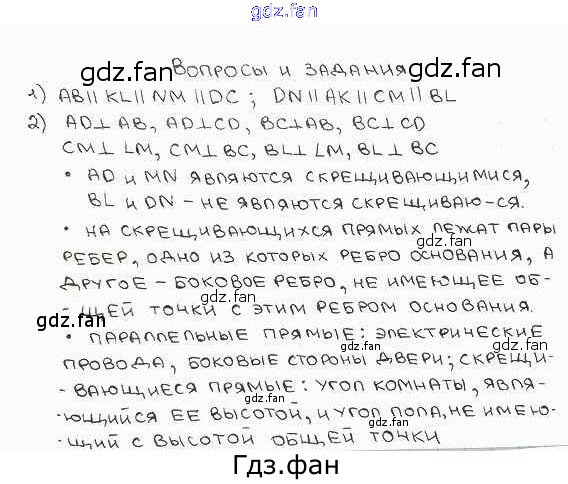 gdz.fan
gdz.fan gdz.fan
Вопросы и задания
1) AB || KL || NM || DC ; DN || AK || CM || BL
2) AD⊥AB, AD⊥CD, BC⊥AB, BC⊥CD
CM⊥LM, CM⊥BC, BL⊥LM, BL⊥BC
gdz.fan
• AD и MN являются скрещивающимися,
BL и DN - не являются скрещиваю-ся.
gdz.fan
• На скрещивающихся прямых лежат пары
ребер, одно из которых ребро основания, а
gdz.fan
другое - боковое ребро, не имеющее об-
gdz.fan
-щей точки с этим ребром основания.
gdz.fan
• Параллельные прямые: электрические
провода, боковые стороны двери; скрещи-
gdz.fan
-вающиеся прямые: угол комнаты, явля-
gdz.fan
-ющийся ее высотой, и угол пола, не имею-
gdz.fan
-щий с высотой общей точки
Гдз.фан